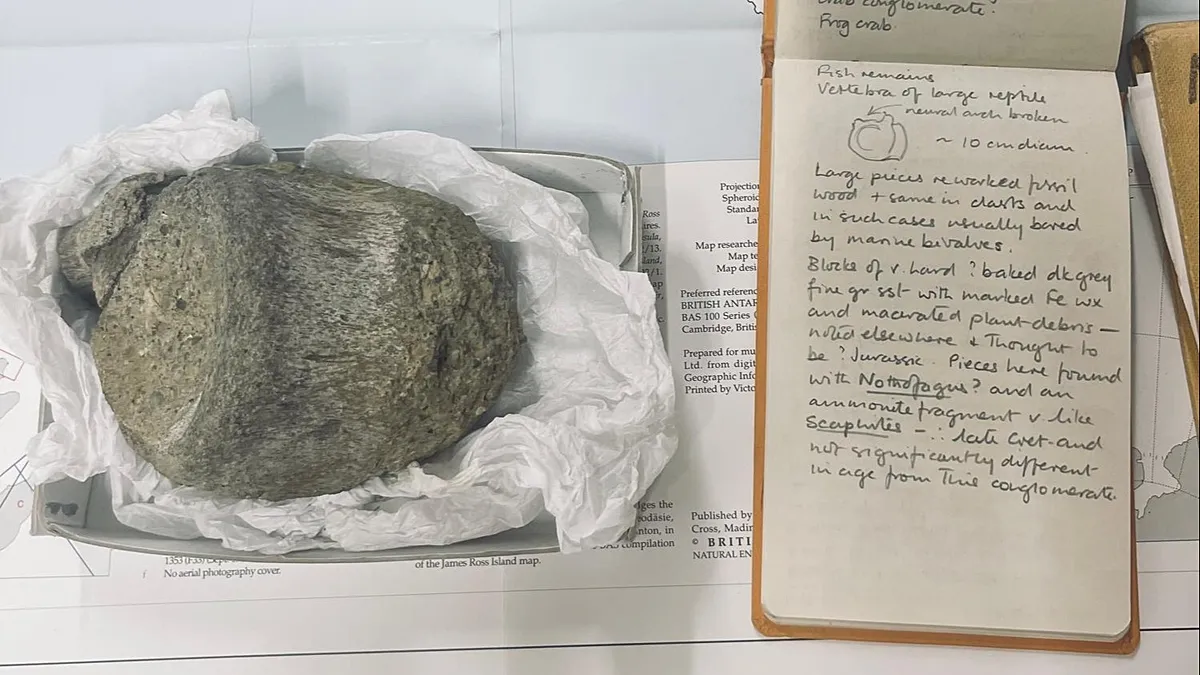 crab conglomerate.
Frog crab.
Fish remains
Vertebra of large reptile
neural arch broken
~ 10 cm diam.
Large pieces reworked fossil
wood + same in clasts and
in such cases usually bored
by marine bivalves.
Blocks of v. hard ? baked dk grey
fine gr sst with marked Fe wx
and macerated plant debris —
noted elsewhere & Thought to
be ? Jurassic. Pieces here found
with Nothofagus? and an
ammonite fragment v. like
Scaphites — ∴ late Cret. and
not significantly different
in age from This conglomerate.
Projectio
Spheroi
Standar
La
Map researche
Map te
Map desi
Preferred referenc
BRITISH ANTAR
BAS 100 Series
Cambridge, Britis
Prepared for mu
Ltd. from digit
Geographic Info
Printed by Victo
Published by
Cross, Madin
© BRITI
NATURAL EN
Ross
ures.
sula,
1/13.
land,
/1.
ap
c.
C
dges the
eodäsie,
nton, in
compilation
No aerial photography cover.
of the James Ross Island map.